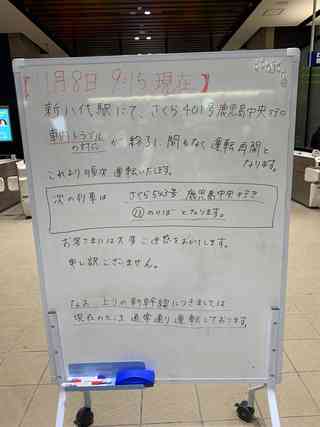 【1月8日 9:15 現在】
新八代駅にて、さくら401号鹿児島中央行の
車両トラブル
の対応 が終了し間もなく運転再開と
なります。
これより順次運転いたします。
次の列車は さくら543号 鹿児島中央ゆき
⑪のりば となります。
お客さまには大変ご迷惑をおかけします。
申し訳ございません。
なお、上りの新幹線につきましては
現在のところ 通常通り運転しております。